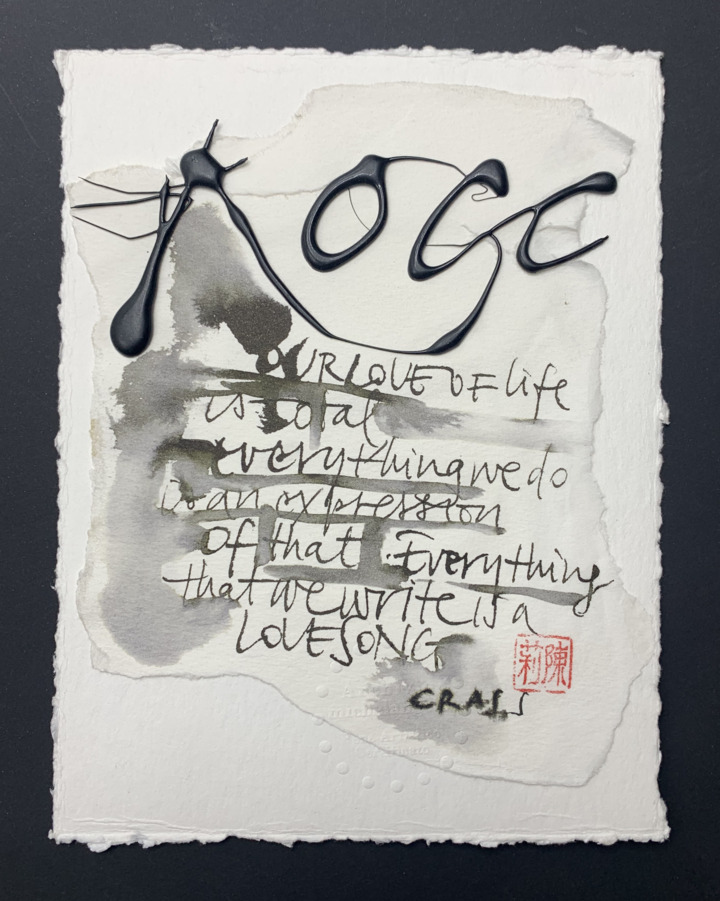 OUR LOVE OF life
is total
everything we do
is an expression
Of that. Everything
that we write is a
LOVE SONG
陳莉
CRASS